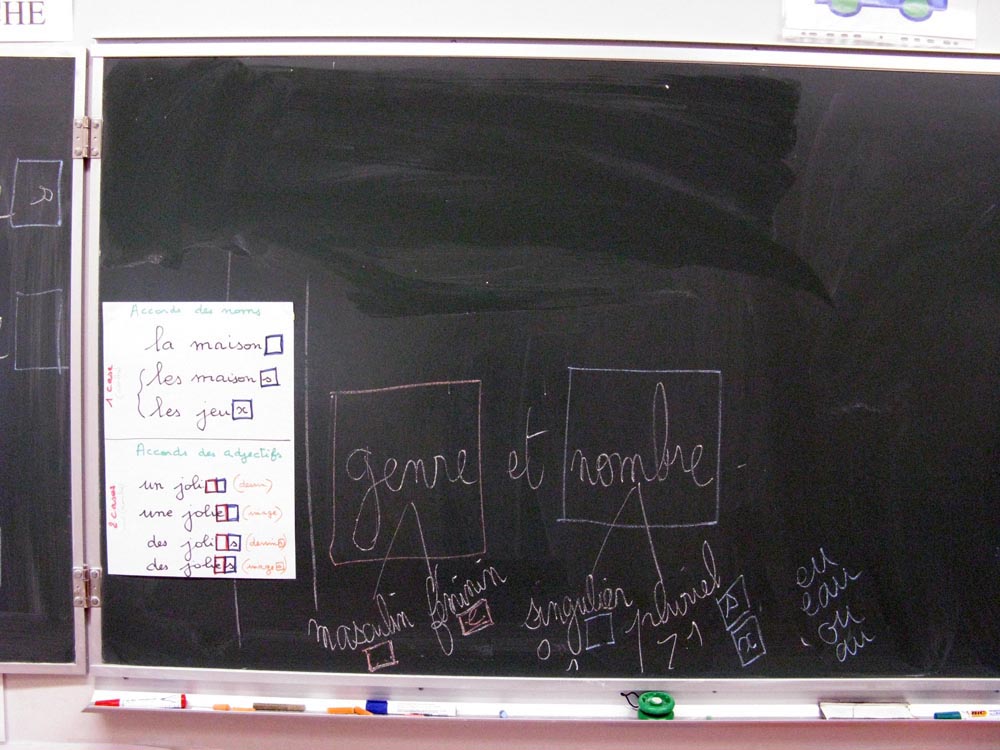 CHE
R
Accords des noms
la maison
les maison s
les jeu x
1 case
Accords des adjectifs
un joli (dessin)
une jolie (image)
des joli s (dessins)
des jolies (images)
2 cases
genre et nombre
masculin féminin singulier pluriel s
e 0 1 >1 x
eu
eau
ou
au
BIC